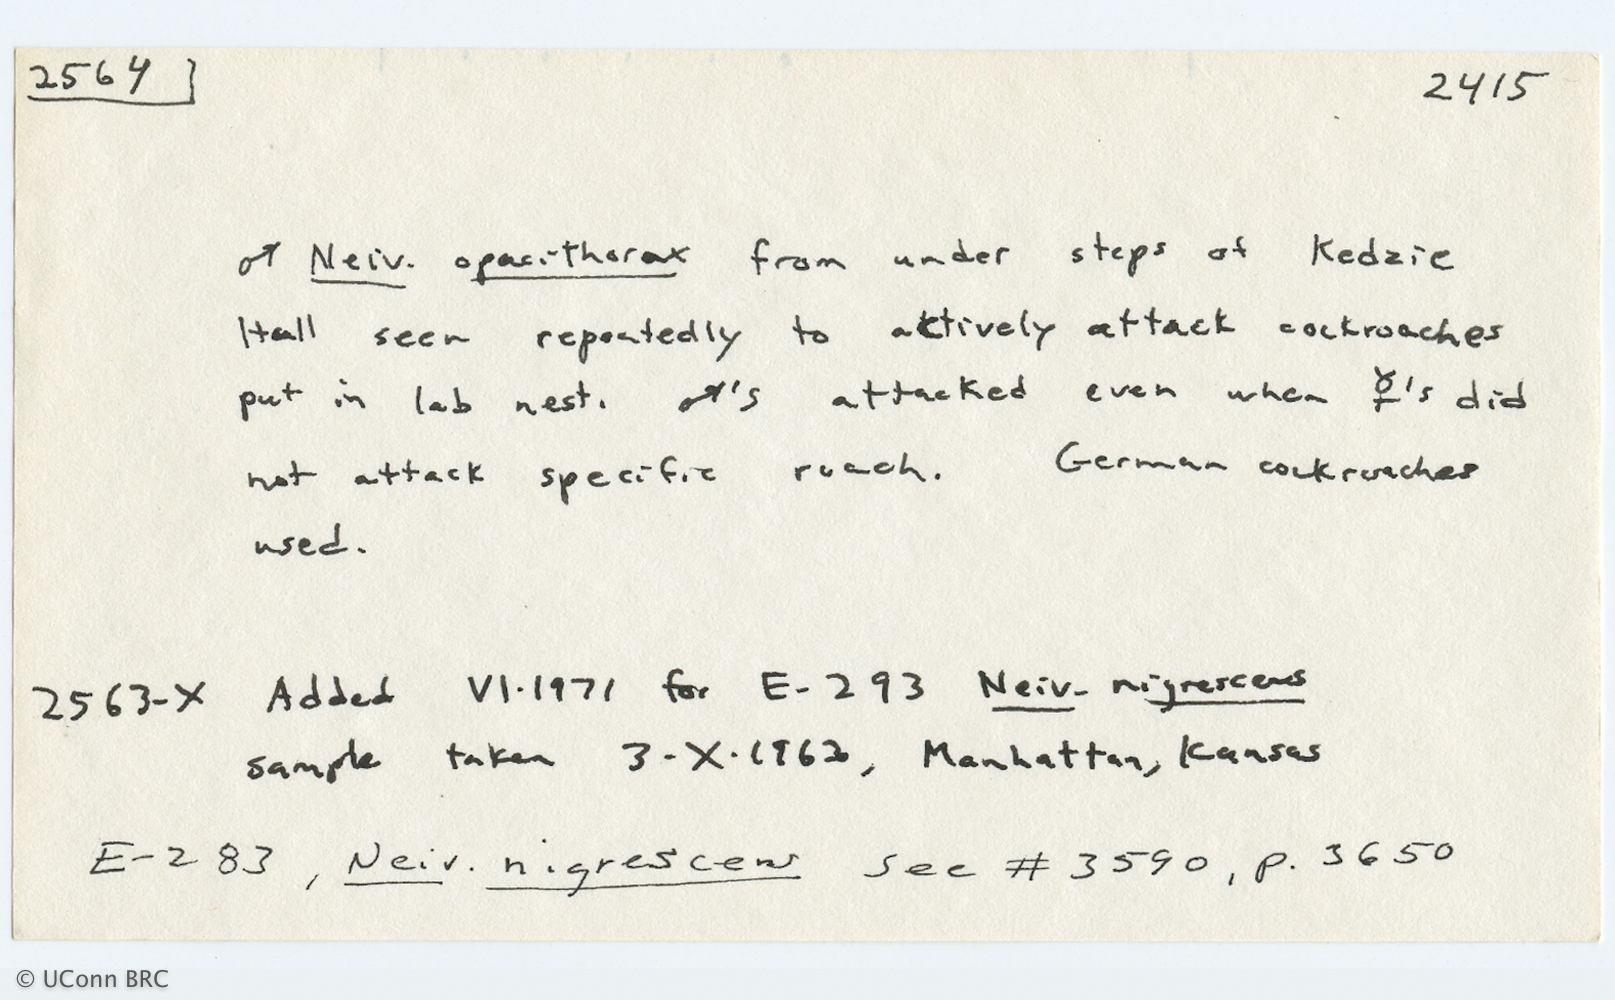 2564] 2415
♂ Neiv. opacithorax from under steps of Kedzie
Hall seen repeatedly to aktively attack cockroaches
put in lab nest. ♂'s attacked even when ☿'s did
not attack specific roach. German cockroaches
used.
2563-X Added VI.1971 for E-293 Neiv. nigrescens
sample taken 3-X-1962, Manhattan, Kansas
E-283, Neiv. nigrescens See # 3590, p. 3650
© UConn BRC